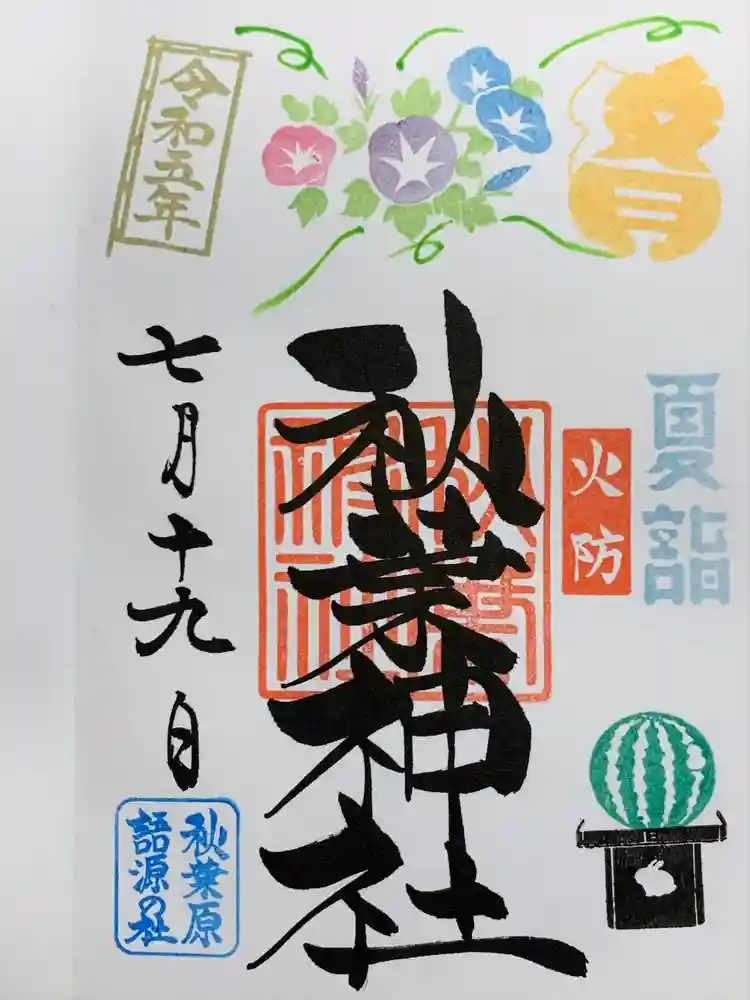 文月
夏詣
火防
秋葉神社
令和五年
七月十九日
秋葉原
語源の社